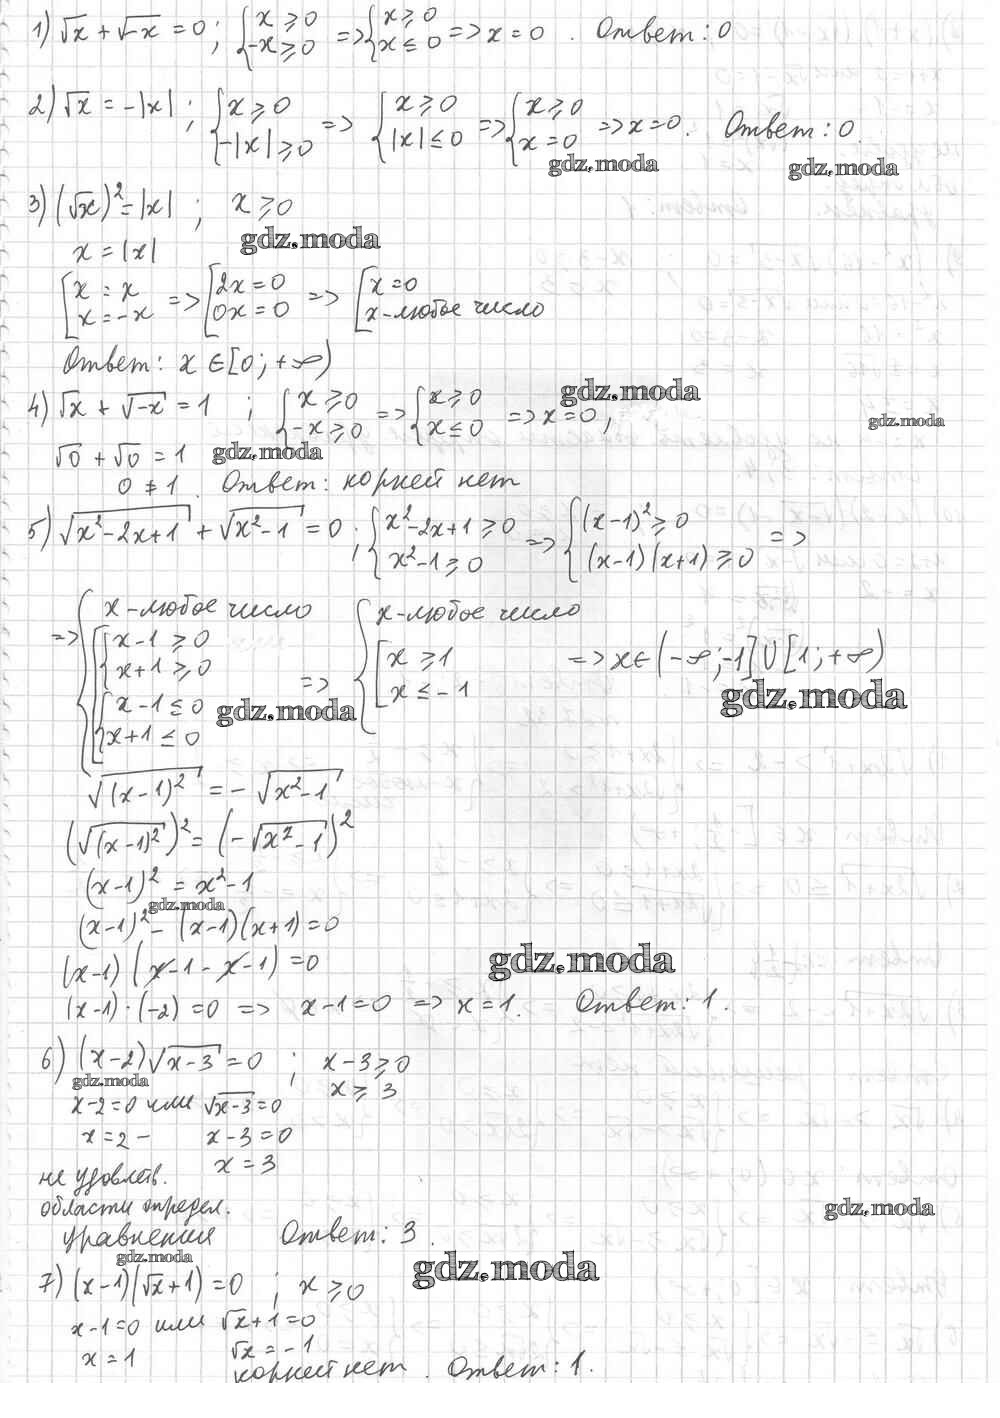 1) √x + √-x = 0 ; { x ⩾ 0 ; -x ⩾ 0 => { x ⩾ 0 ; x ≤ 0 => x = 0 . Ответ: 0
2) √x = -|x| ; { x ⩾ 0 ; -|x| ⩾ 0 => { x ⩾ 0 ; |x| ≤ 0 => { x ⩾ 0 ; x = 0 => x = 0. Ответ: 0.
gdz.moda gdz.moda
3) (√x)² = |x| ; x ⩾ 0
gdz.moda
x = |x|
[ x = x ; x = -x => [ 2x = 0 ; 0x = 0 => [ x = 0 ; x - любое число
Ответ: x ∈ [0 ; +∞)
gdz.moda
4) √x + √-x = 1 ; { x ⩾ 0 ; -x ⩾ 0 => { x ⩾ 0 ; x ≤ 0 => x = 0 ;
gdz.moda
√0 + √0 = 1 gdz.moda
0 ≠ 1 . Ответ: корней нет
5) √x²-2x+1 + √x²-1 = 0 ; { x²-2x+1 ⩾ 0 ; x²-1 ⩾ 0 => { (x-1)² ⩾ 0 ; (x-1)(x+1) ⩾ 0 =>
=> { x - любое число ; [ { x-1 ⩾ 0 ; x+1 ⩾ 0 ; { x-1 ≤ 0 ; x+1 ≤ 0 => { x - любое число ; [ x ⩾ 1 ; x ≤ -1 => x ∈ (-∞ ; -1] ∪ [1 ; +∞)
gdz.moda gdz.moda
√(x-1)² = - √x²-1
(√(x-1)²)² = (-√x²-1)²
(x-1)² = x²-1
gdz.moda
(x-1)² - (x-1)(x+1) = 0
(x-1) (x-1-x-1) = 0
gdz.moda
(x-1)·(-2) = 0 => x-1 = 0 => x = 1. Ответ: 1.
6) (x-2)√x-3 = 0 ; x-3 ⩾ 0
gdz.moda
x ⩾ 3
x-2=0 или √x-3 = 0
x = 2 - x-3 = 0
x = 3
не удовлетв.
области определ.
gdz.moda
уравнения Ответ: 3.
gdz.moda
gdz.moda
7) (x-1)(√x+1) = 0 ; x ⩾ 0
x-1=0 или √x+1=0
x = 1 √x = -1
корней нет . Ответ: 1.